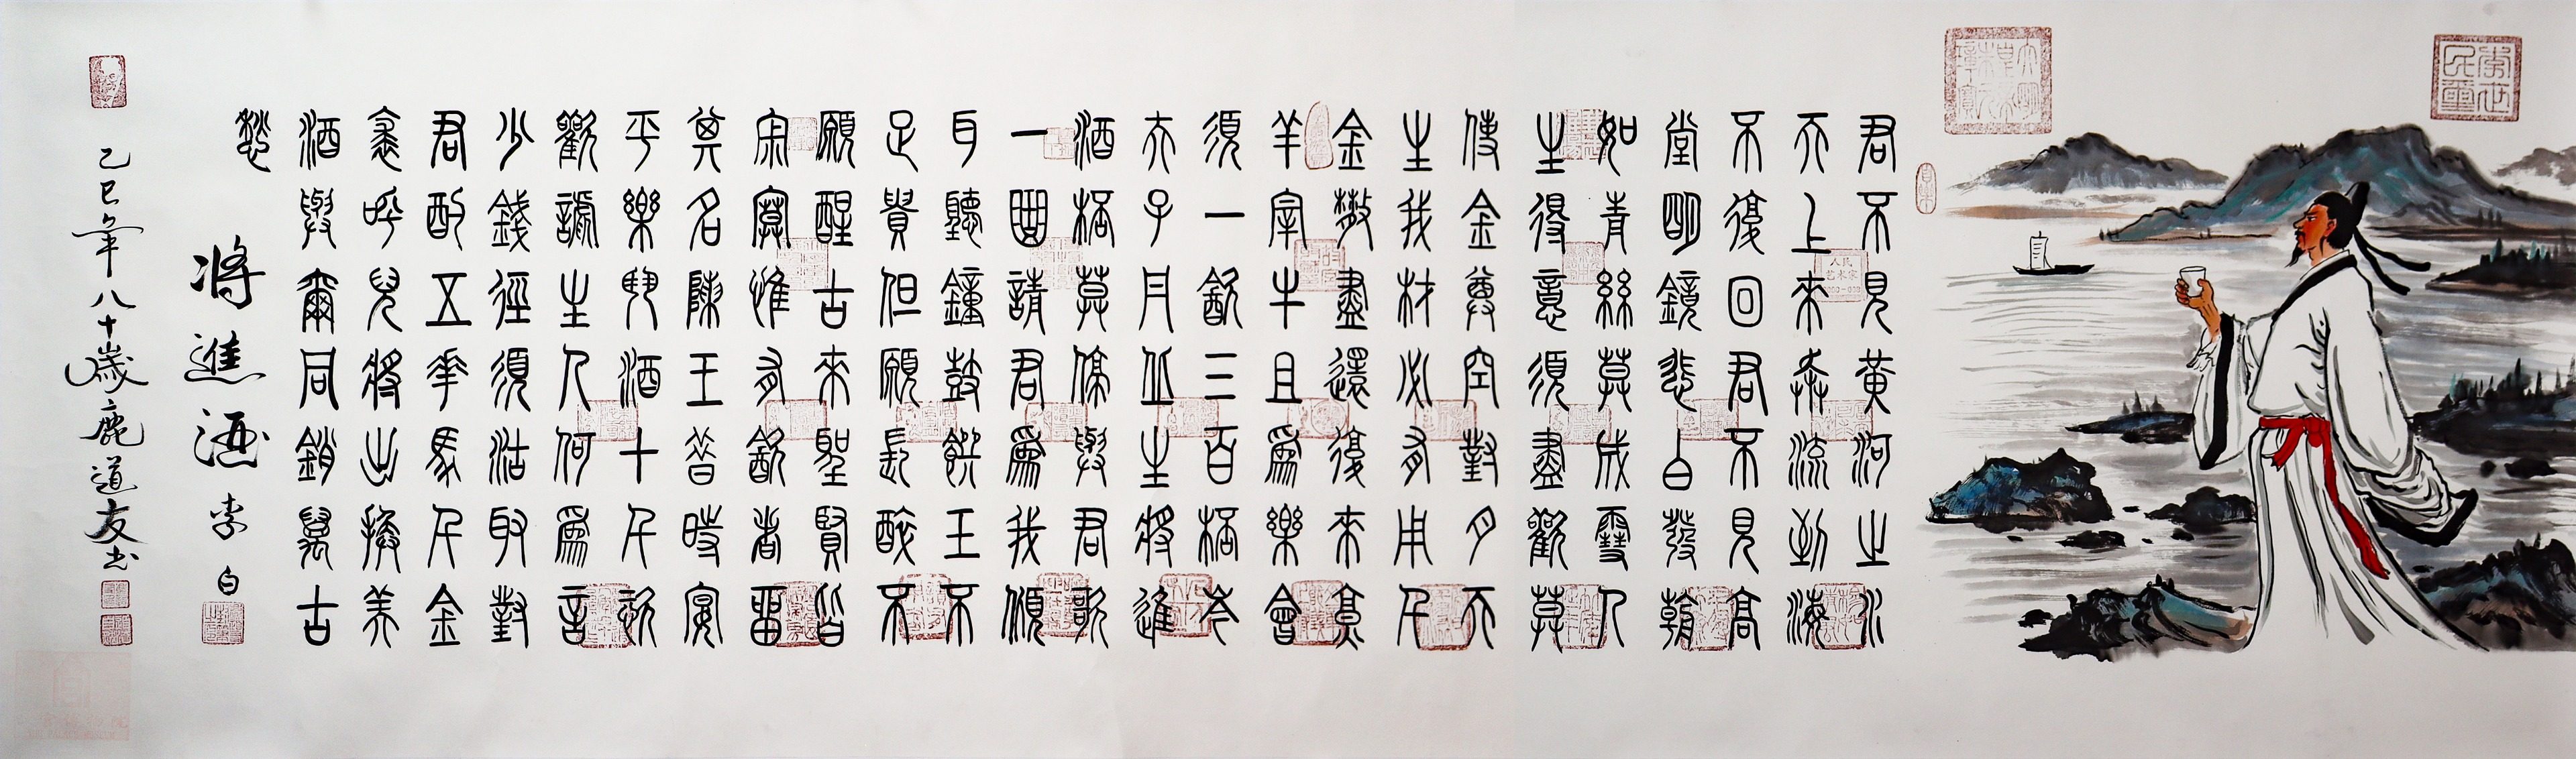 君不見黃河之水
天上來奔流到海
不復回君不見高
堂明鏡悲白髮朝
如青絲莫成雪人
生得意須盡歡莫
使金尊空對月天
生我材必有用千
金散盡還復來烹
羊宰牛且爲樂會
須一飲三百杯岑
夫子丹丘生將進
酒杯莫停與君歌
一曲請君爲我傾
耳聽鐘鼓饌玉不
足貴但願長醉不
願醒古來聖賢皆
寂寞惟有飲者留
其名陳王昔時宴
平樂斗酒十千恣
歡謔主人何爲言
少錢徑須沽取對
君酌五花馬千金
裘呼兒將出換美
酒與爾同銷萬古
愁
將進酒 李白
乙巳年八十歲鹿道友书
人民
艺术家